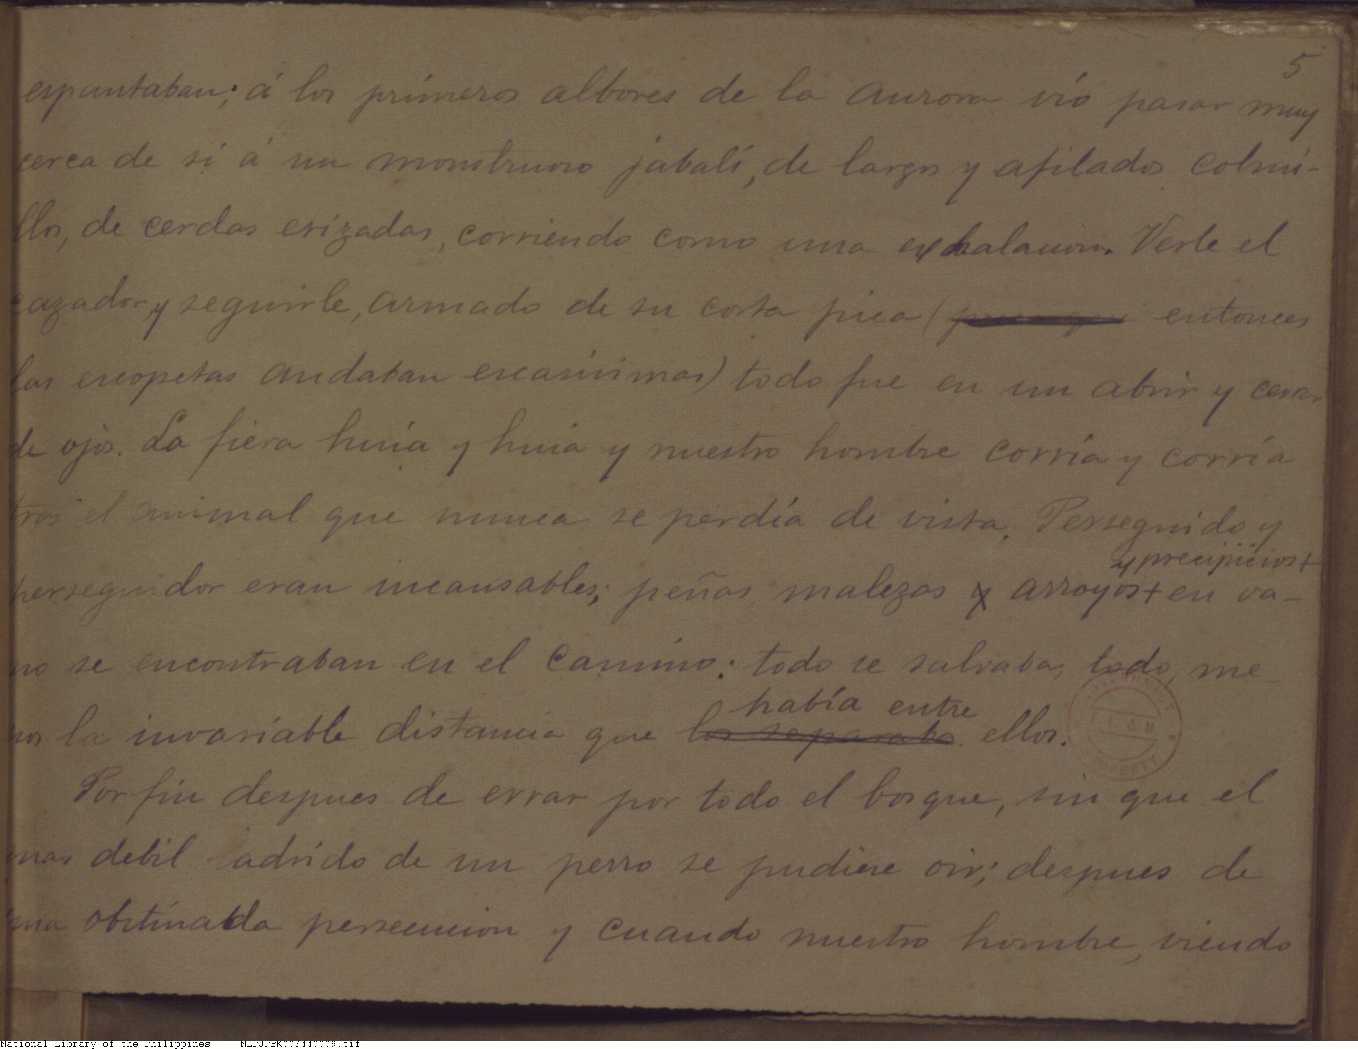 5
espantaban; á los primeros albores de la aurora vió pasar muy
cerca de sí á un monstruoso jabalí, de largos y afilados colmi-
llos, de cerdas erizadas, corriendo como una exhalacion. Verle el
cazador y seguirle, armado de su corta pica ( entonces
las escopetas andaban escasísimas) todo fue en un abrir y cerrar
de ojos. La fiera huía y huía y nuestro hombre corría y corría
tras el animal que nunca se perdía de vista. Perseguido y
y precipicios+
perseguidor eran incansables; peñas malezas y arroyos+ en va-
no se encontraban en el camino: todo se salvaba, todo, me-
nos la invariable distancia que los separaba ellos.
había entre
Por fin despues de errar por todo el bosque, sin que el
mas debil ladrido de un perro se pudiese oir; despues de
una obstinada persecucion y cuando nuestro hombre, viendo
National Library of the Philippines